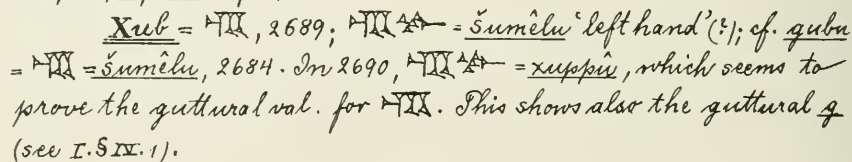 Xub = , 2689; = šumêlu 'left hand' (?); cf. gubu
= = šumêlu, 2684. In 2690, = xuppû, which seems to
prove the guttural val. for . This shows also the guttural g
(see I. § IV. 1).